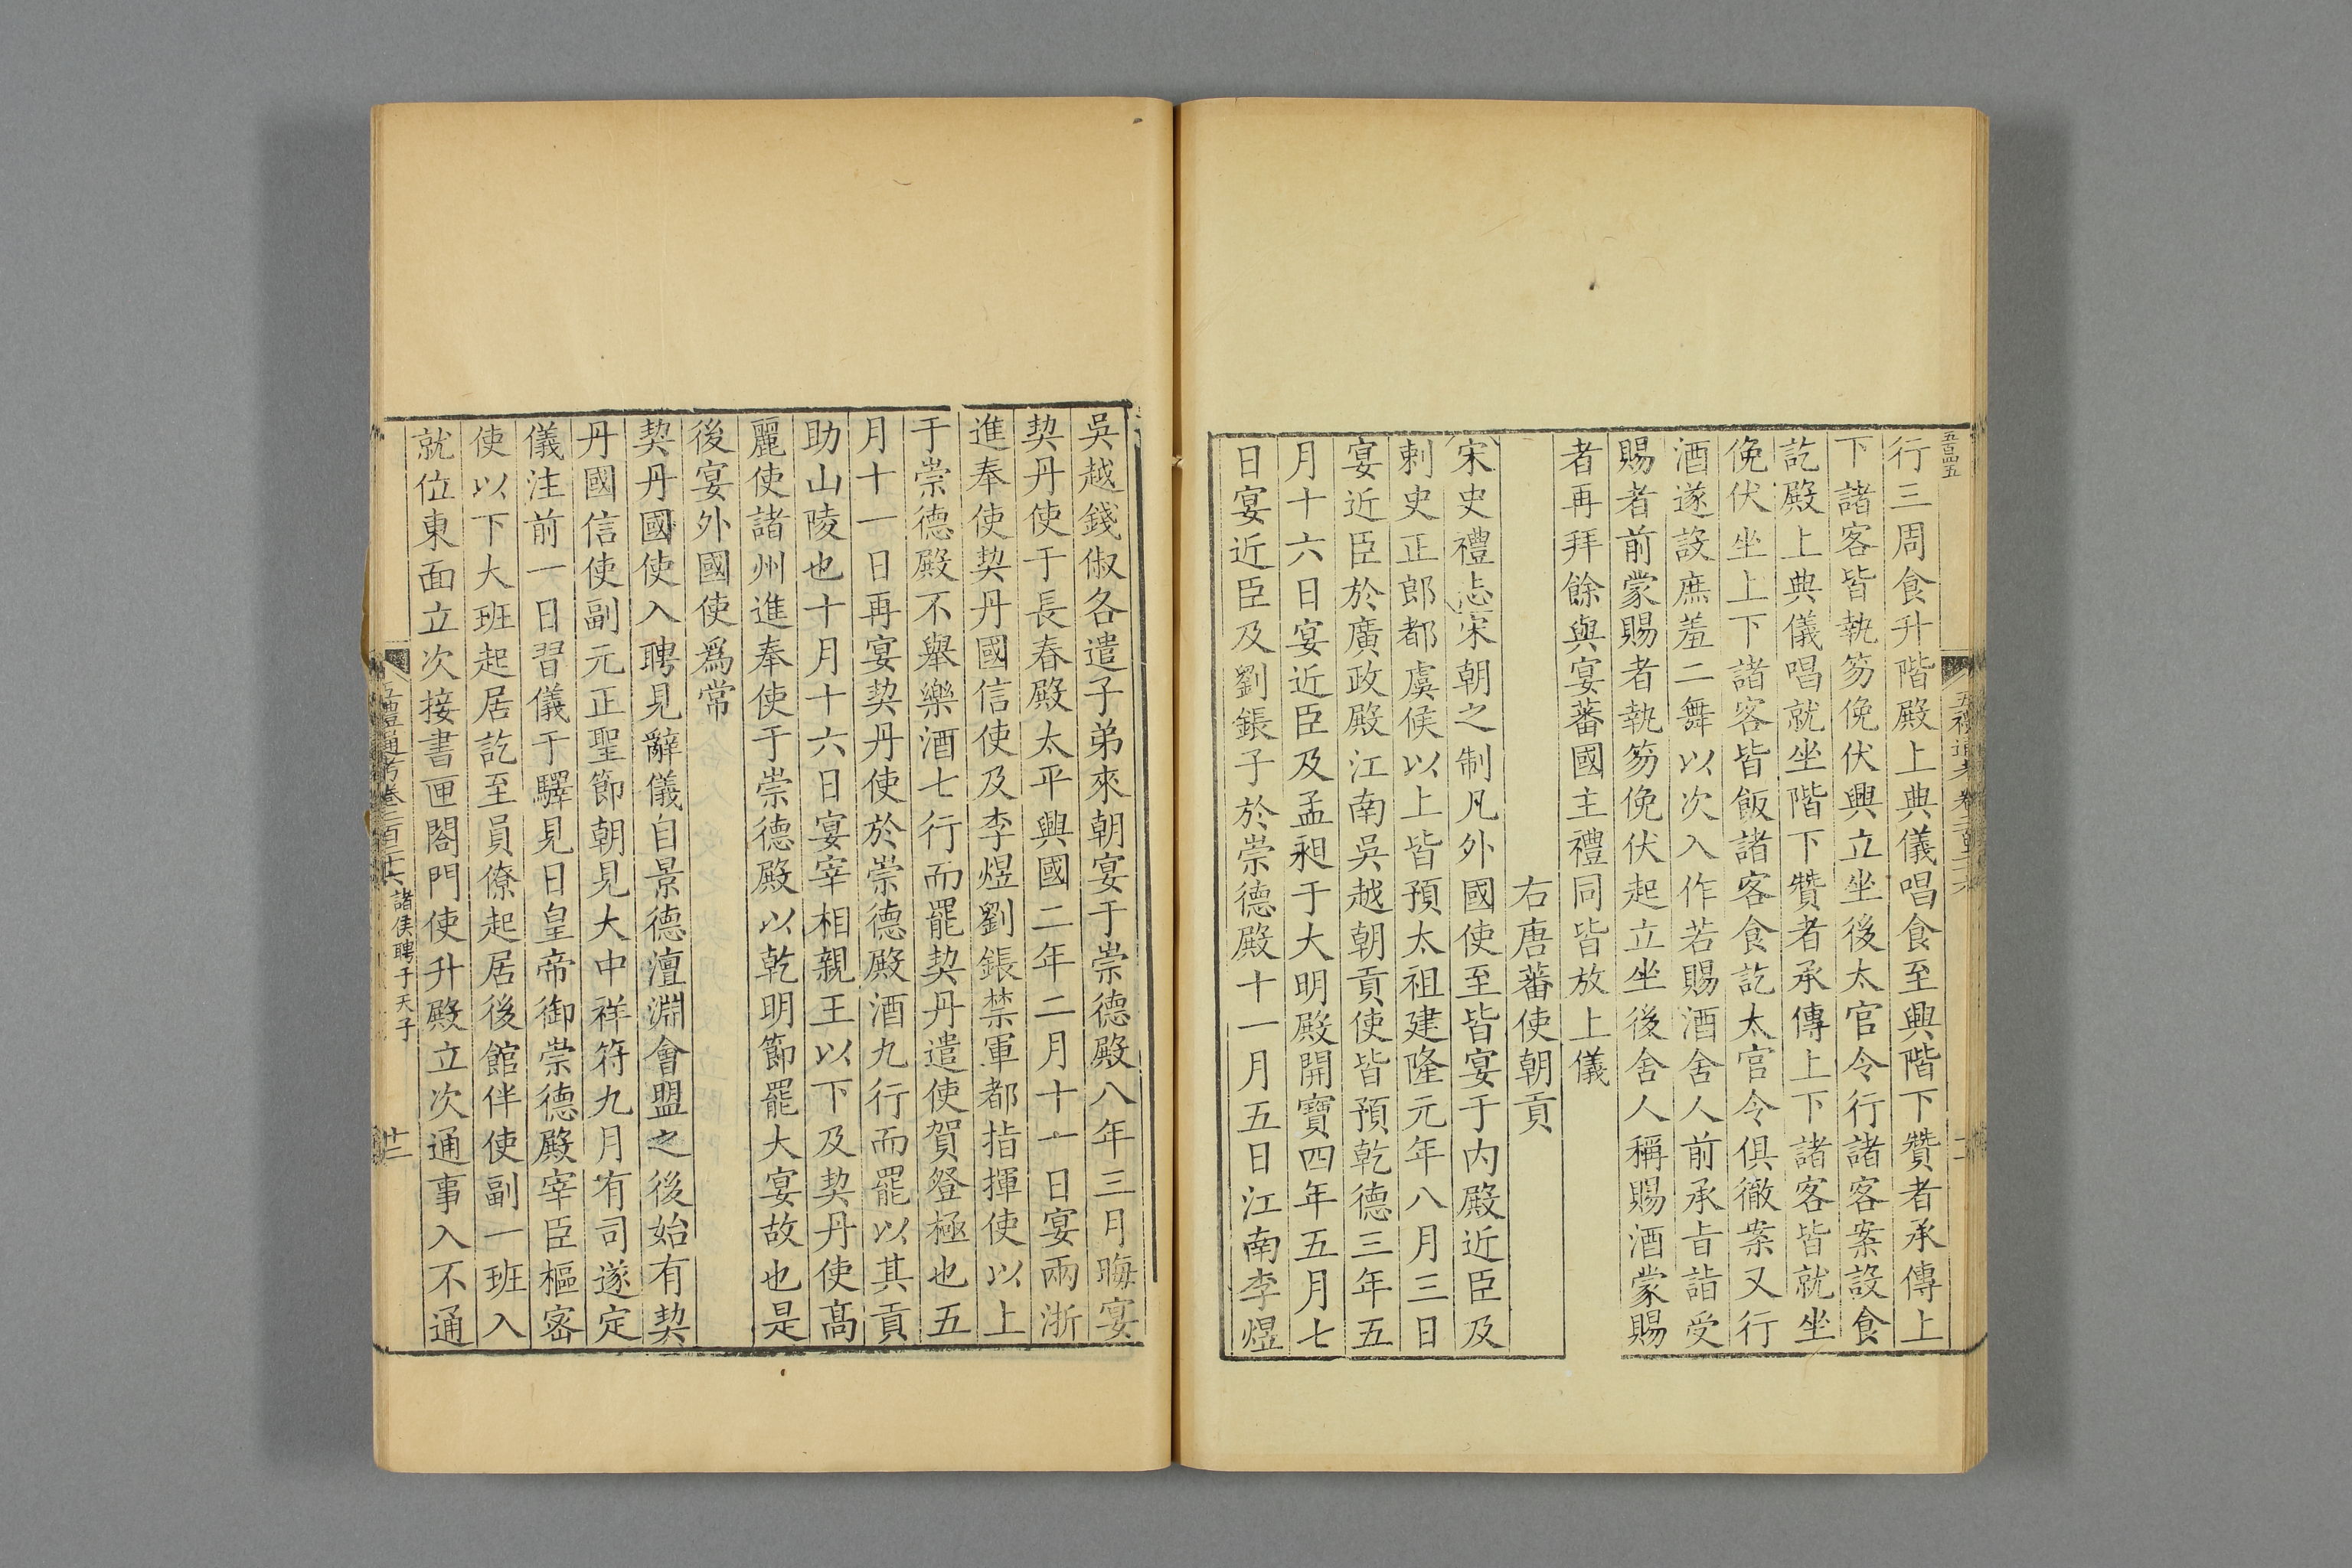 五百四五
行三周食升階殿上典儀唱食至興階下贊者承傳上
下諸客皆執笏俛伏興立坐後太官令行諸客案設食
訖殿上典儀唱就坐階下贊者承傳上下諸客皆就坐
俛伏坐上下諸客皆飯諸客食訖太官令俱徹案又行
酒遂設庶羞二舞以次入作若賜酒舍人前承旨詣受
賜者前蒙賜者執笏俛伏起立坐後舍人稱賜酒蒙賜
者再拜餘與宴蕃國主禮同皆放上儀
右唐蕃使朝貢
宋史禮志宋朝之制凡外國使至皆宴于内殿近臣及
刺史正郎都虞候以上皆預太祖建隆元年八月三日
宴近臣於廣政殿江南吳越朝貢使皆預乾德三年五
月十六日宴近臣及孟昶于大明殿開寶四年五月七
日宴近臣及劉鋹子於崇德殿十一月五日江南李煜
吳越錢俶各遣子弟來朝宴于崇德殿八年三月晦宴
契丹使于長春殿太平興國二年二月十一日宴兩浙
進奉使契丹國信使及李煜劉鋹禁軍都指揮使以上
于崇德殿不舉樂酒七行而罷契丹遣使賀登極也五
月十一日再宴契丹使於崇德殿酒九行而罷以其貢
助山陵也十月十六日宴宰相親王以下及契丹使髙
麗使諸州進奉使于崇德殿以乾明節罷大宴故也是
後宴外國使爲常
契丹國使入聘見辭儀自景德澶淵會盟之後始有契
丹國信使副元正聖節朝見大中祥符九月有司遂定
儀注前一日習儀于驛見日皇帝御崇德殿宰臣樞密
使以下大班起居訖至員僚起居後館伴使副一班入
就位東面立次接書匣閤門使升殿立次通事入不通
五禮通考卷二百二十六 諸侯聘于天子 廿二